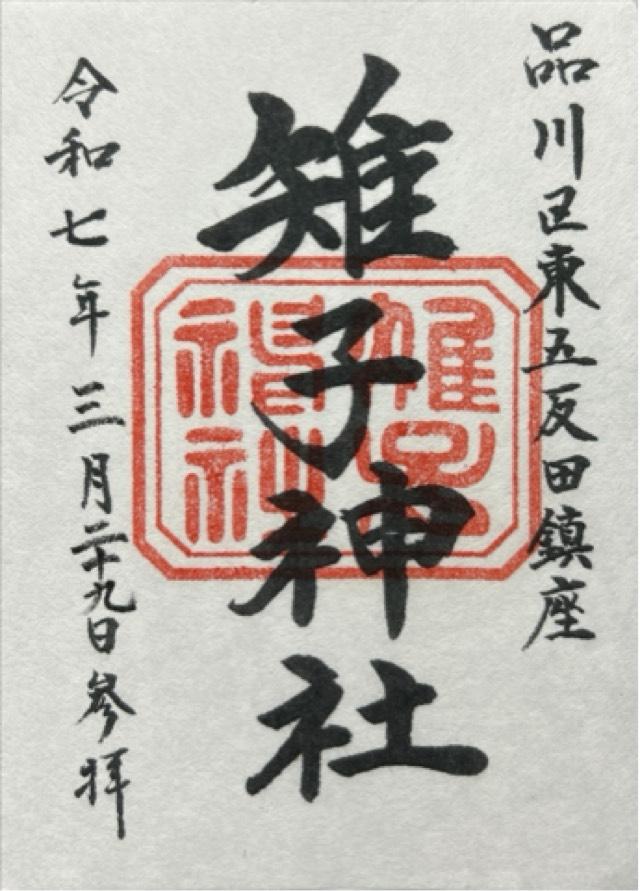 品川区東五反田鎮座
雉子神社
令和七年三月二十九日参拝